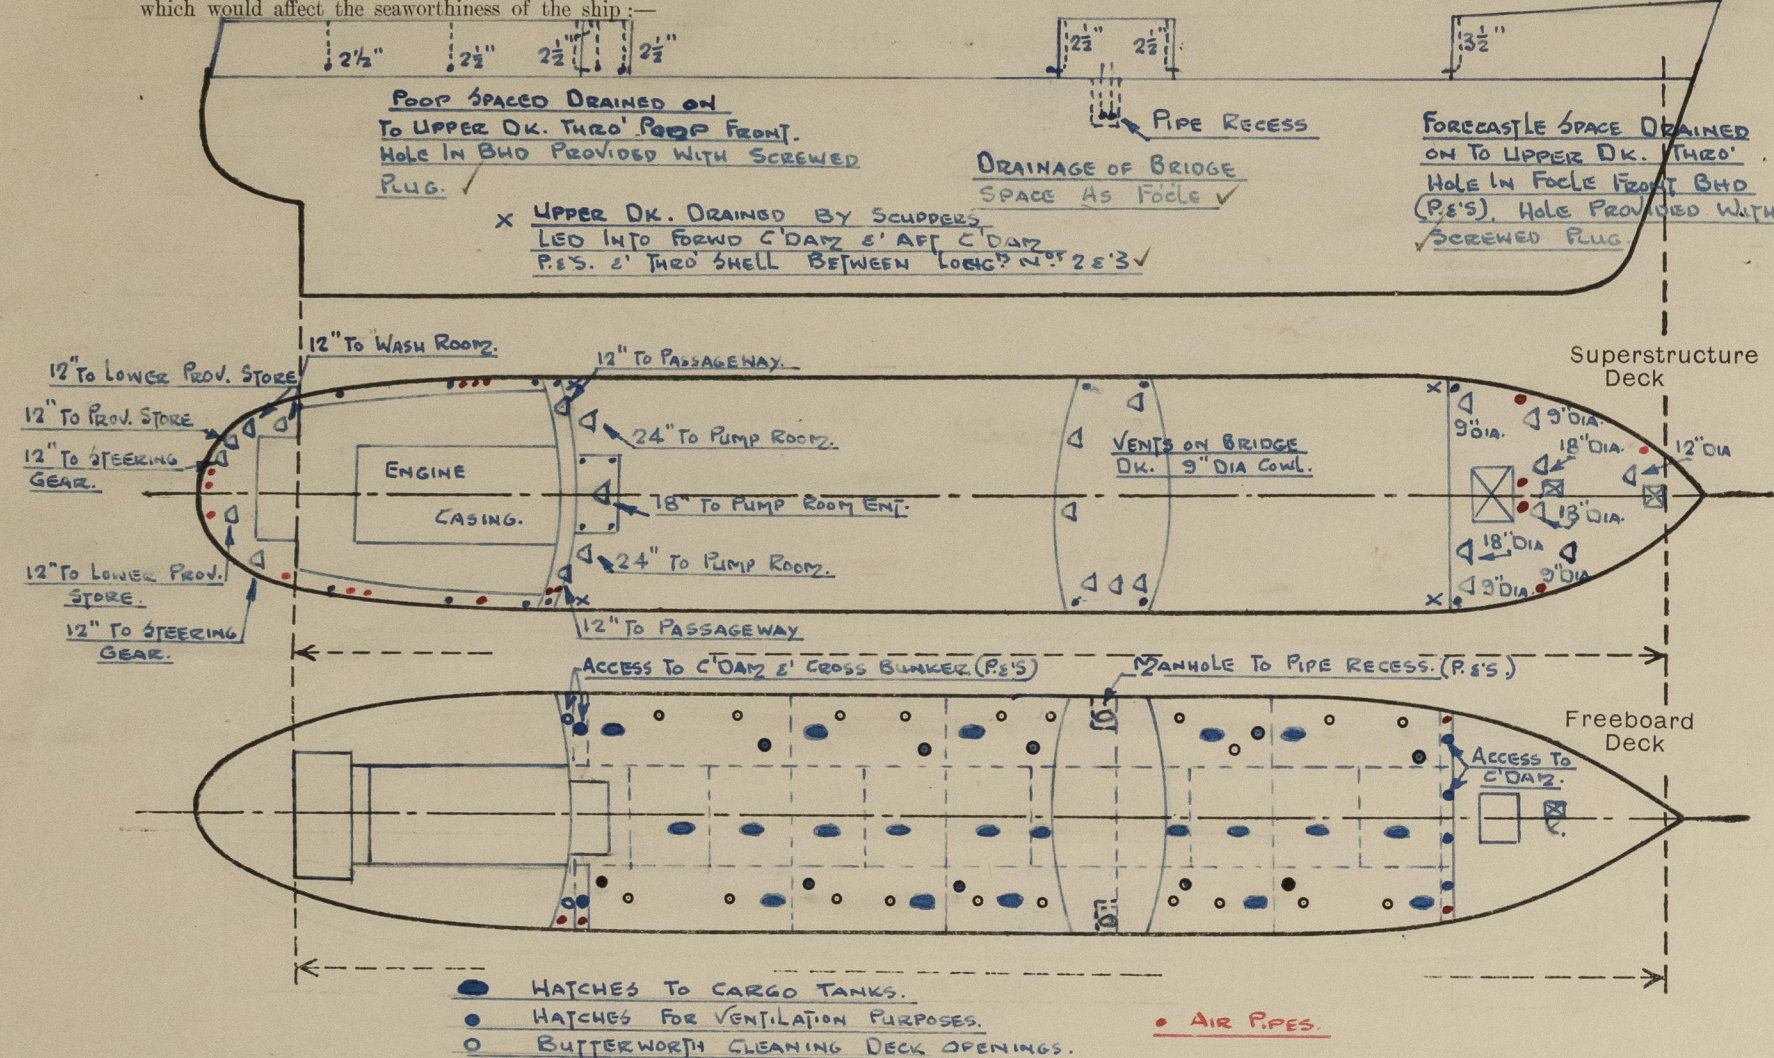 which would affect the seaworthiness of the ship :—
2½"
2½"
2½"
2½"
2½"
2½"
3½"
POOP SPACED DRAINED ON
TO UPPER DK. THRO' POOP FRONT.
HOLE IN BHD PROVIDED WITH SCREWED
PLUG. ✓
PIPE RECESS
DRAINAGE OF BRIDGE
SPACE AS FOCLE ✓
FORECASTLE SPACE DRAINED
ON TO UPPER DK. THRO'
HOLE IN FOCLE FRONT BHD
(P.&'S). HOLE PROVIDED WITH
✓ SCREWED PLUG
X UPPER DK. DRAINED BY SCUPPERS
LED INTO FORWD C'DAM &' AFT C'DAM
P.&S. &' THRO' SHELL BETWEEN Nos 2 &'3 ✓
12" TO WASH ROOM.
12" TO LOWER PROV. STORE
12" TO PROV. STORE
12" TO STEERING
GEAR.
12" TO PASSAGEWAY.
Superstructure
Deck
24" TO PUMP ROOM.
ENGINE
CASING.
18" TO PUMP ROOM ENT.
24" TO PUMP ROOM.
VENTS ON BRIDGE
DK. 9" DIA COWL.
9"DIA.
9"DIA.
18"DIA.
12"DIA
18"DIA.
18"DIA
9"DIA
9"DIA.
12" TO LOWER PROV.
STORE.
12" TO STEERING
GEAR.
12" TO PASSAGEWAY
ACCESS TO C'DAM &' CROSS BUNKER (P.&'S)
MANHOLE TO PIPE RECESS. (P.&'S.)
Freeboard
Deck
ACCESS TO
C'DAM.
HATCHES TO CARGO TANKS.
HATCHES FOR VENTILATION PURPOSES.
BUTTERWORTH CLEANING DECK OPENINGS.
AIR PIPES.